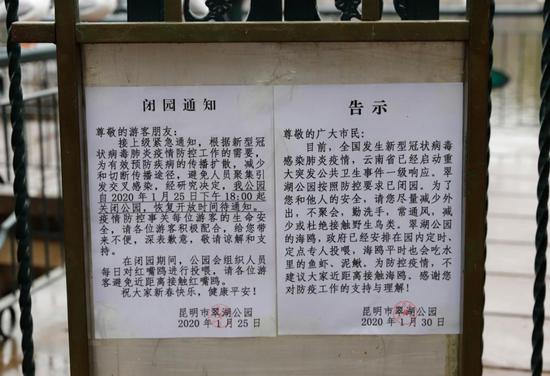 闭园通知
尊敬的游客朋友：
接上级紧急通知，根据新型冠
状病毒肺炎疫情防控工作的需要，
为有效预防疾病的传播扩散，减少
和切断传播途径，避免人员聚集引
发交叉感染，经研究决定，我公园
自2020年1月25日下午18:00起
关闭公园，恢复开放时间待通知。
疫情防控事关每位游客的生命安
全，请各位游客积极配合，给您带
来不便，深表歉意，敬请谅解和支
持。
在闭园期间，公园会组织人员
每日对红嘴鸥进行投喂，请各位游
客避免近距离接触红嘴鸥。
祝大家新春快乐，健康平安！
昆明市翠湖公园
2020年1月25日
告示
尊敬的广大市民：
目前，全国发生新型冠状病毒
感染肺炎疫情，云南省已经启动重
大突发公共卫生事件一级响应。翠
湖公园按照防控要求已闭园。为了
您和他人的安全，请您尽量减少外
出，不聚会，勤洗手，常通风，减
少或杜绝接触野生鸟类。翠湖公园
的海鸥，政府已经安排在园内定时，
定点专人投喂，海鸥平时也会吃水
里的鱼虾、泥鳅，为防控疫情，不
建议大家近距离接触海鸥。感谢您
对防疫工作的支持与理解！
昆明市翠湖公园
2020年1月30日